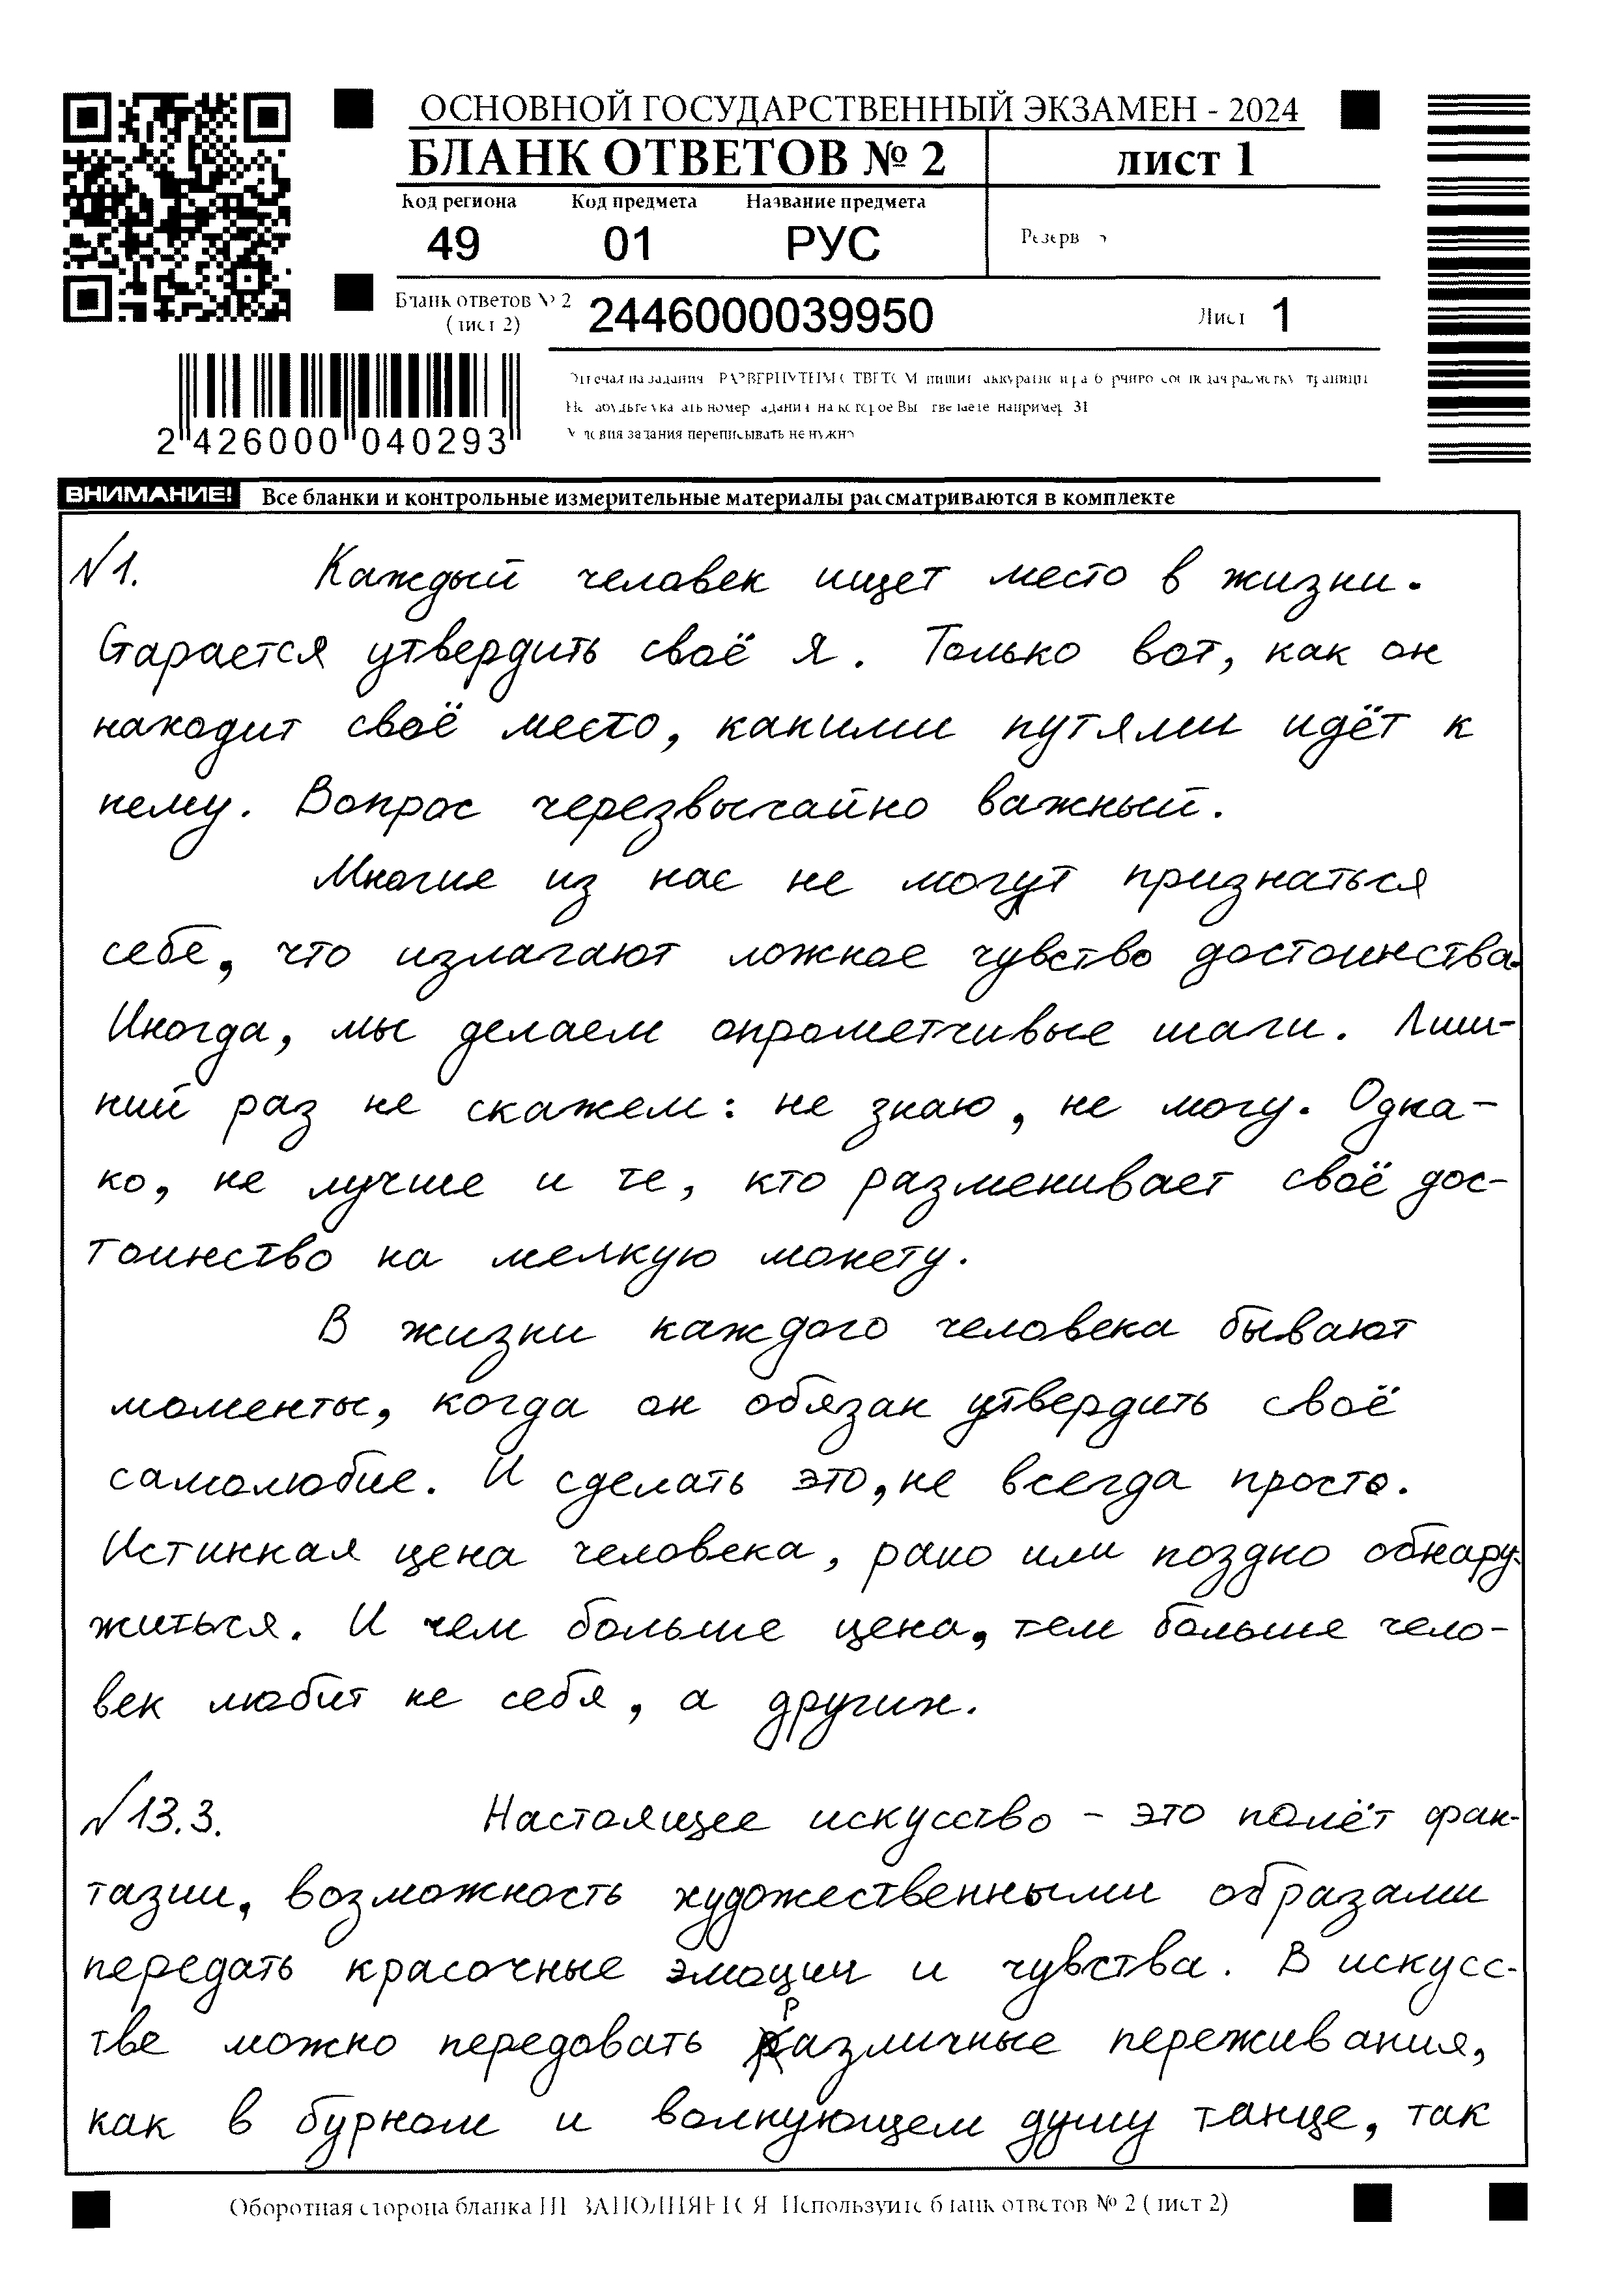 ОСНОВНОЙ ГОСУДАРСТВЕННЫЙ ЭКЗАМЕН - 2024
БЛАНК ОТВЕТОВ № 2 лист 1
Код региона Код предмета Название предмета
49 01 РУС Резерв
Бланк ответов № 2
(лист 2) 2446000039950 Лист 1
2 426000 040293
Условия задания переписывать не нужно
ВНИМАНИЕ! Все бланки и контрольные измерительные материалы рассматриваются в комплекте
№1. Каждый человек ищет место в жизни.
Старается утвердить своё я. Только вот, как он
находит своё место, какими путями идёт к
нему. Вопрос черезвычайно важный.
Многие из нас не могут признаться
себе, что излагают ложное чувство достоинства.
Иногда, мы делаем опрометчивые шаги. Лиш-
ний раз не скажем: не знаю, не могу. Одна-
ко, не лучше и те, кто разменивает своё дос-
тоинство на мелкую монету.
В жизни каждого человека бывают
моменты, когда он обязан утвердить своё
самолюбие. И сделать это, не всегда просто.
Истинная цена человека, рано или поздно обнару-
житься. И чем больше цена, тем больше чело-
век любит не себя, а других.
№13.3. Настоящее искусство - это полёт фан-
тазии, возможность художественными образами
передать красочные эмоции и чувства. В искусс-
тве можно передовать различные переживания,
как в бурном и волнующем душу танце, так
Оборотная сторона бланка НЕ ЗАПОЛНЯЕТСЯ. Используйте бланк ответов № 2 (лист 2)